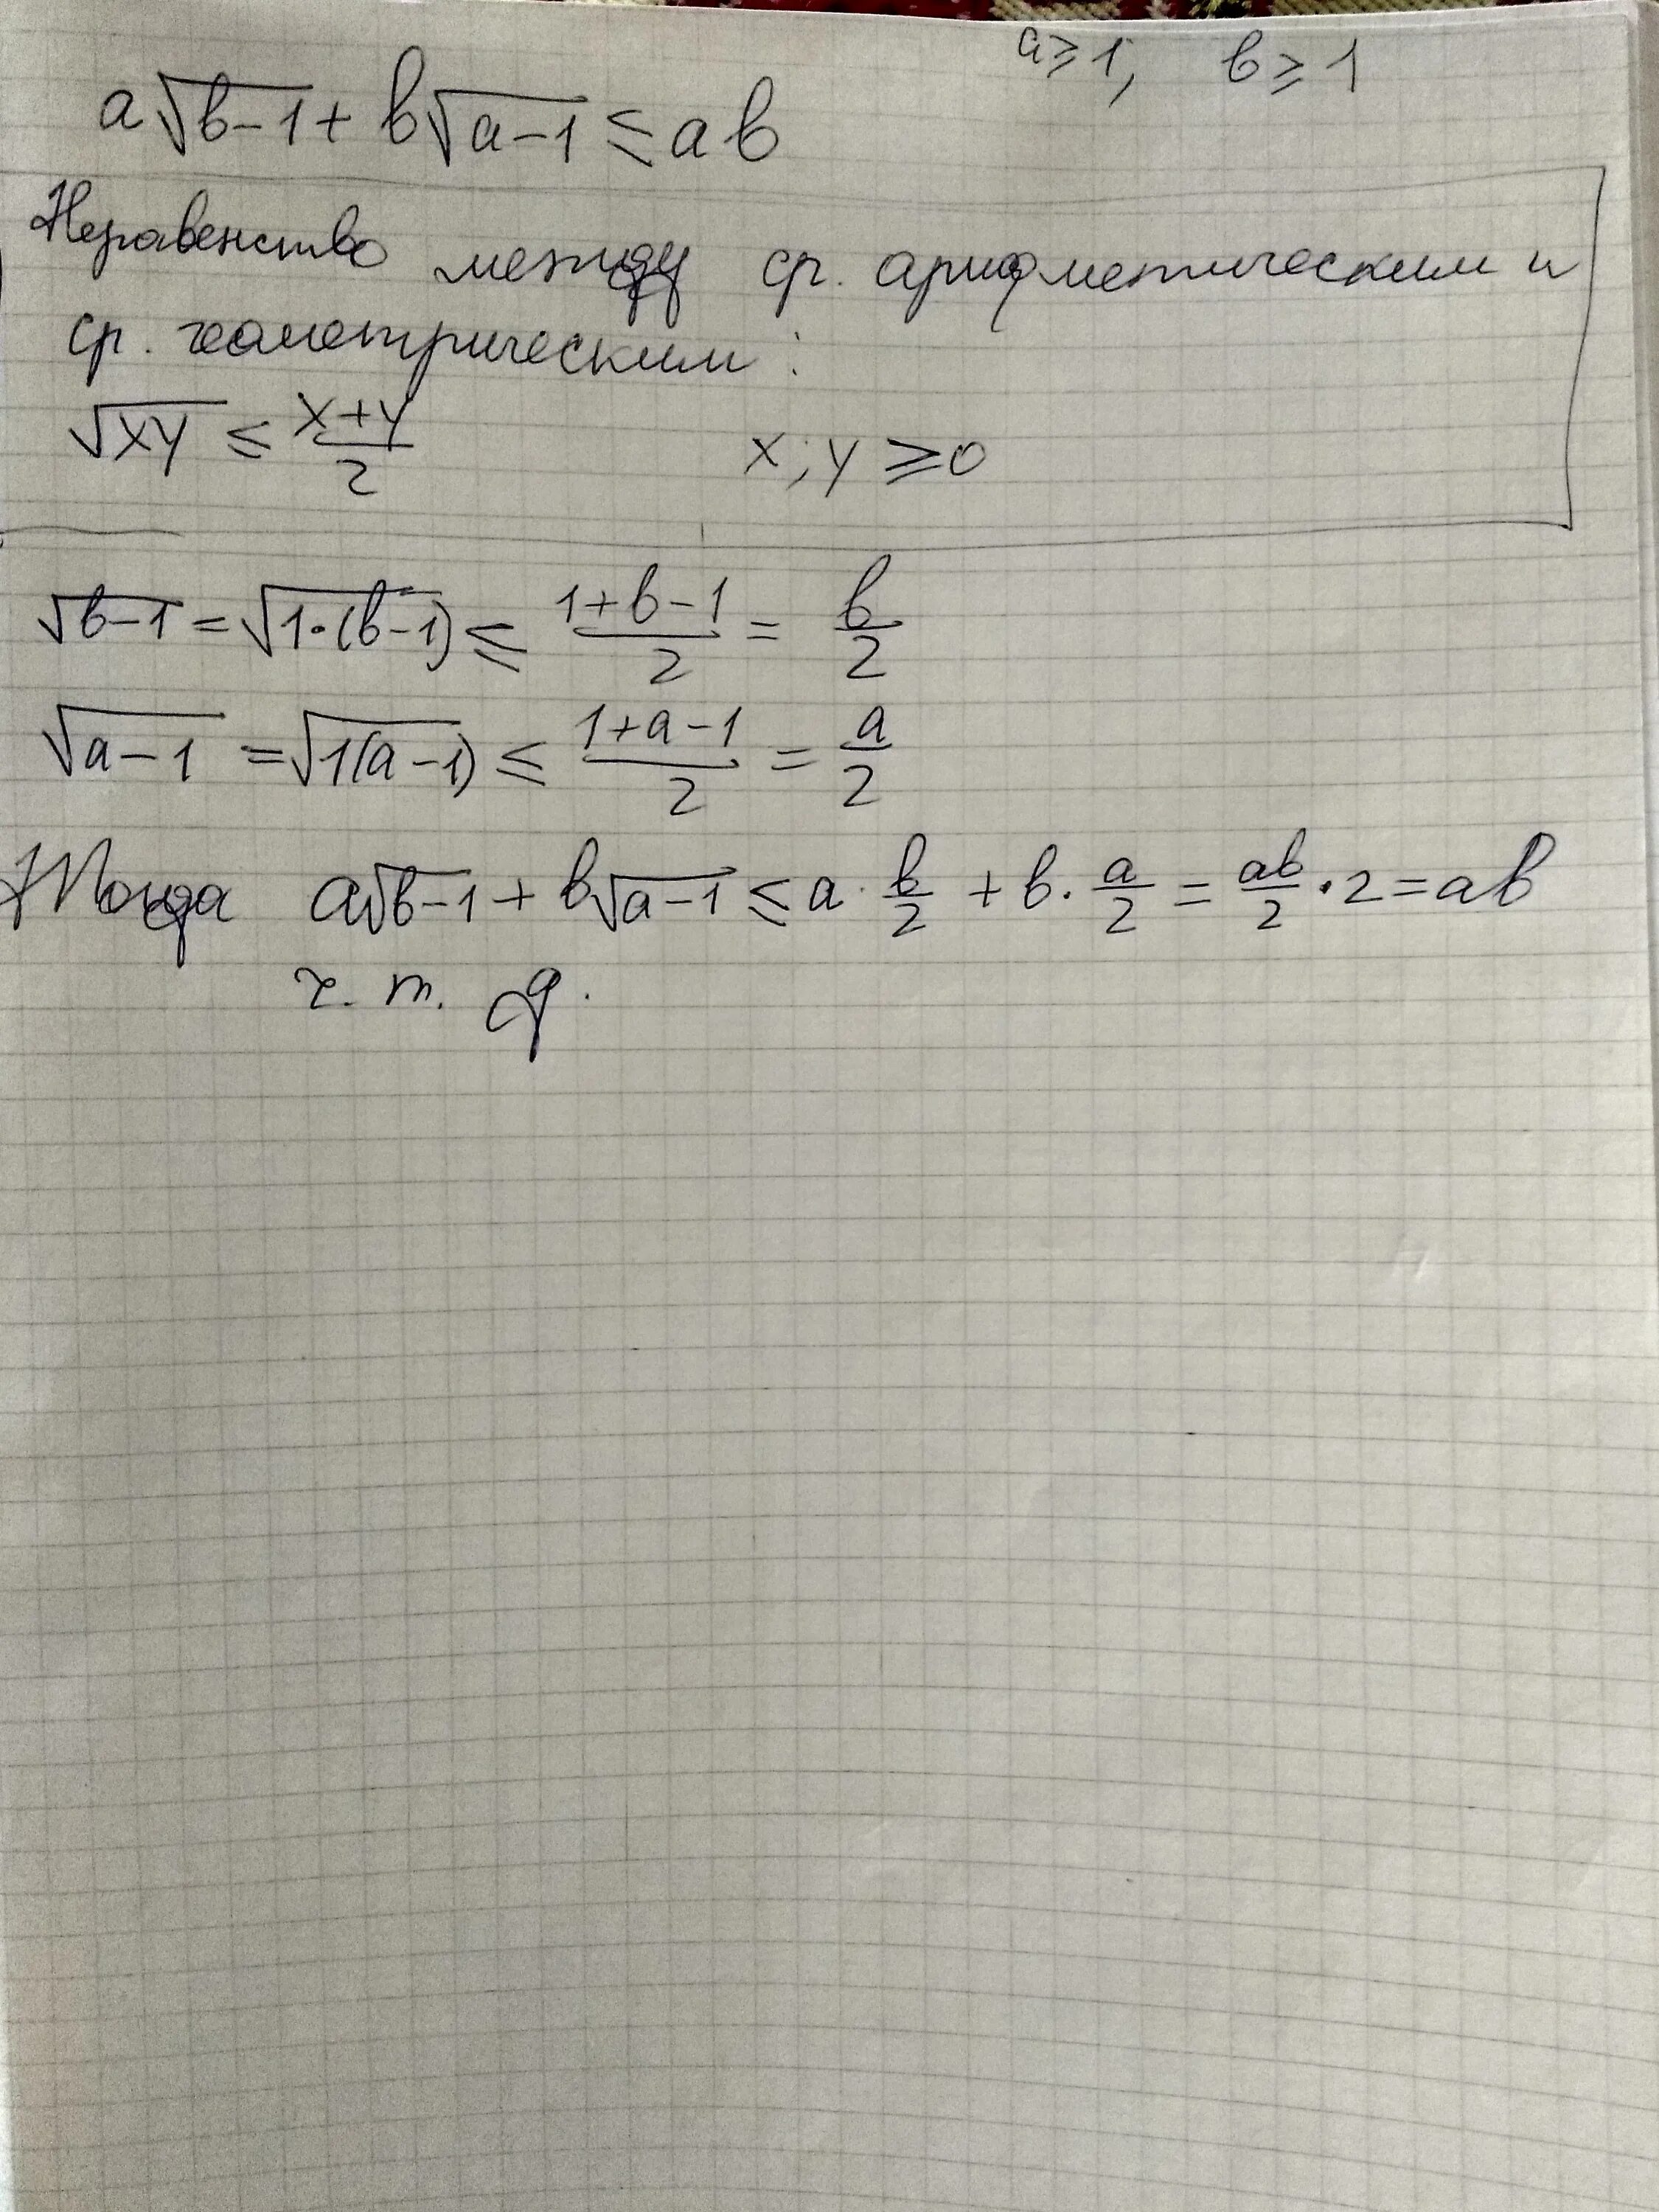 a ≥ 1, b ≥ 1
a√(b-1) + b√(a-1) ≤ ab
Неравенство между ср. арифметическим и
ср. геометрическим:
√(xy) ≤ (x+y)/2 x; y ≥ 0
√(b-1) = √(1·(b-1)) ≤ (1+b-1)/2 = b/2
√(a-1) = √(1(a-1)) ≤ (1+a-1)/2 = a/2
Тогда a√(b-1) + b√(a-1) ≤ a · b/2 + b · a/2 = ab/2 · 2 = ab
ч. т. д.